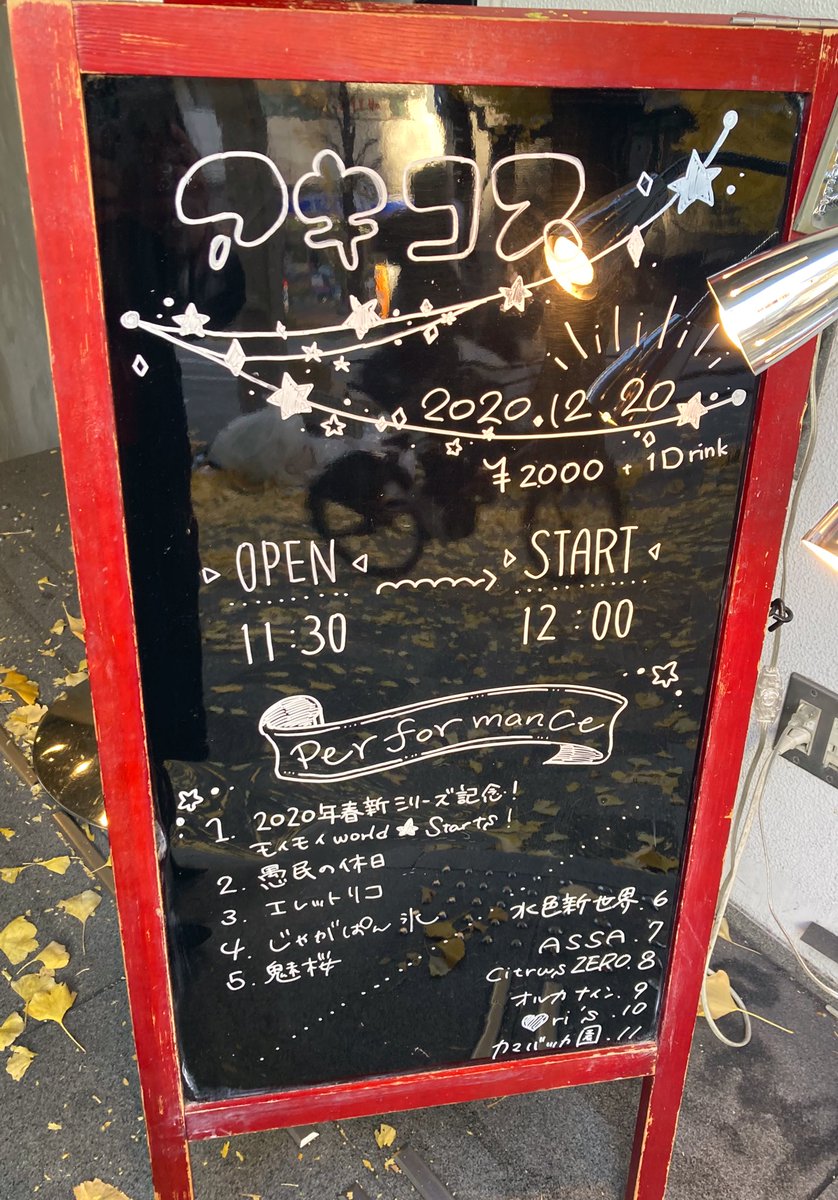 アキコス
2020.12.20
¥2000 + 1Drink
OPEN
START
11:30
12:00
Performance
1. 2020年春新シリーズ記念!
モイモイworld★Starts!
2. 愚民の休日
3. エレットリコ
4. じゃがぱん氷
5. 魅桜
水色新世界.6
ASSA.7
Citrus ZERO.8
オルカナイン.9
♥ri's.10
カマバッカ園.11